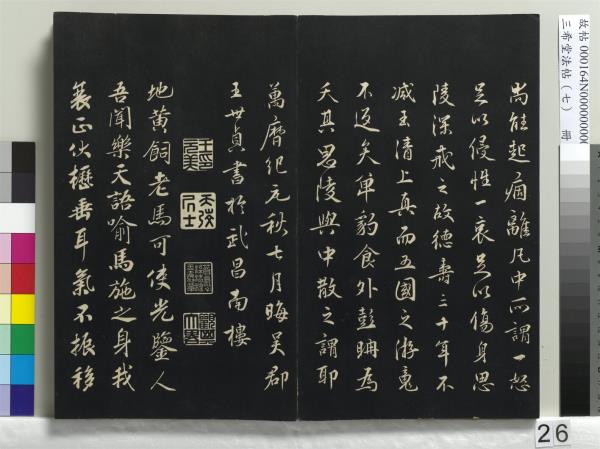 嵩能起痼離凡中所謂一怒
足以侵性一哀足以傷身思
陵深戒之故德壽三十年不
減玉清上真而五國之游竟
不返矣單豹食外彭聃為
夭其思陵與中散之謂耶
萬曆紀元秋七月晦吳郡
王世貞書於武昌南樓
地黃飼老馬可使光鑒人
吾聞樂天語喻馬施之身我
衰正伏櫪垂耳氣不振移
故帖 000164N000000000
三希堂法帖(七) 冊
26